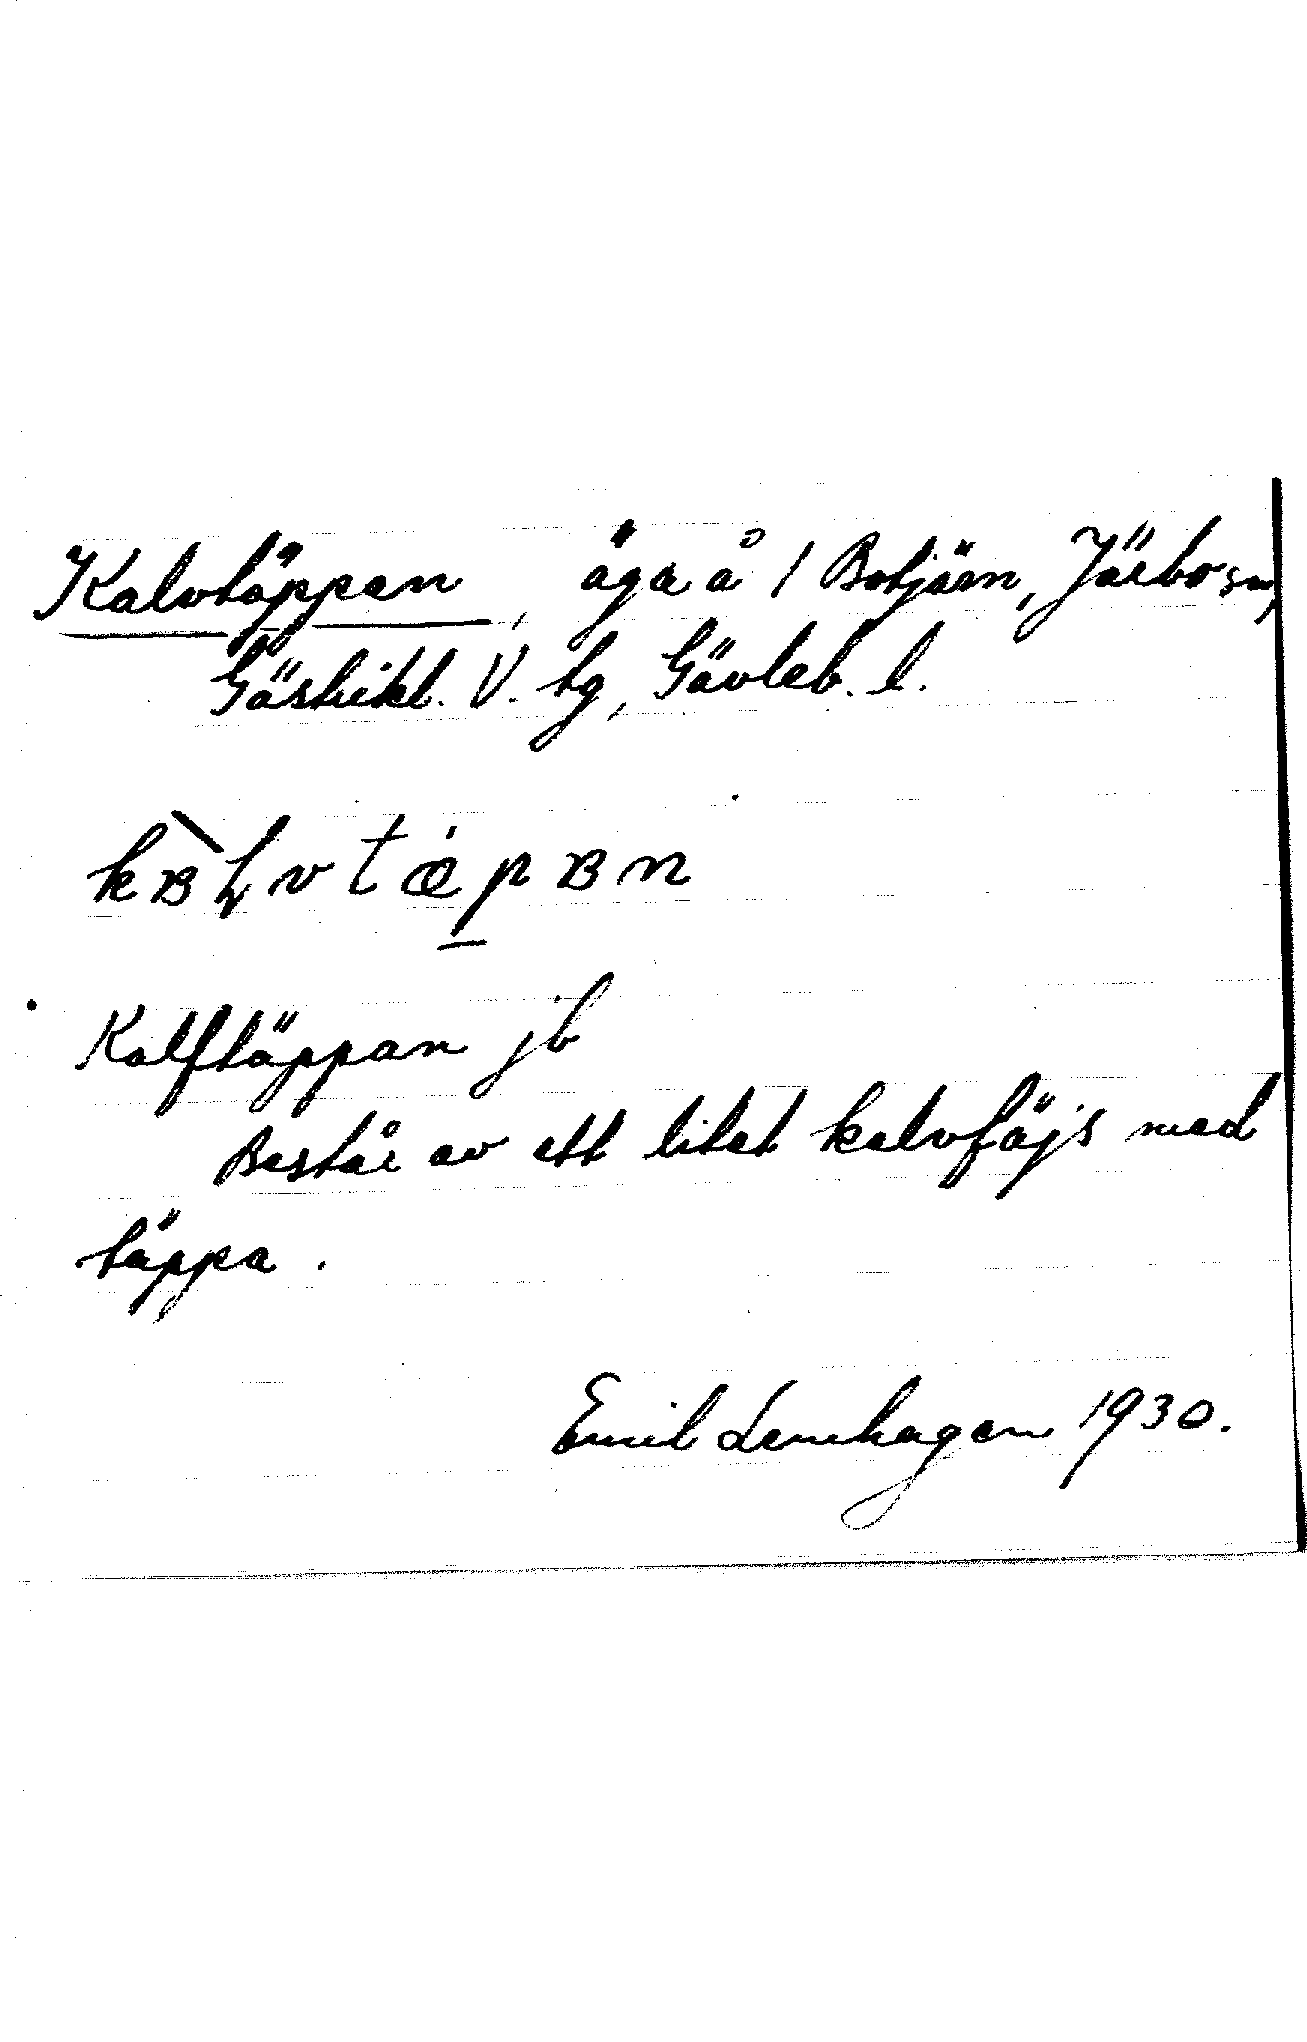 Kalvtäppan, äga å 1 Botjärn, Järbo sn,
Gästrikl. V. tg, Gävleb. l.
Kalftäppan jb
Består av ett litet kalvföjs med
täppa.
Emil Lennhagen 1930.